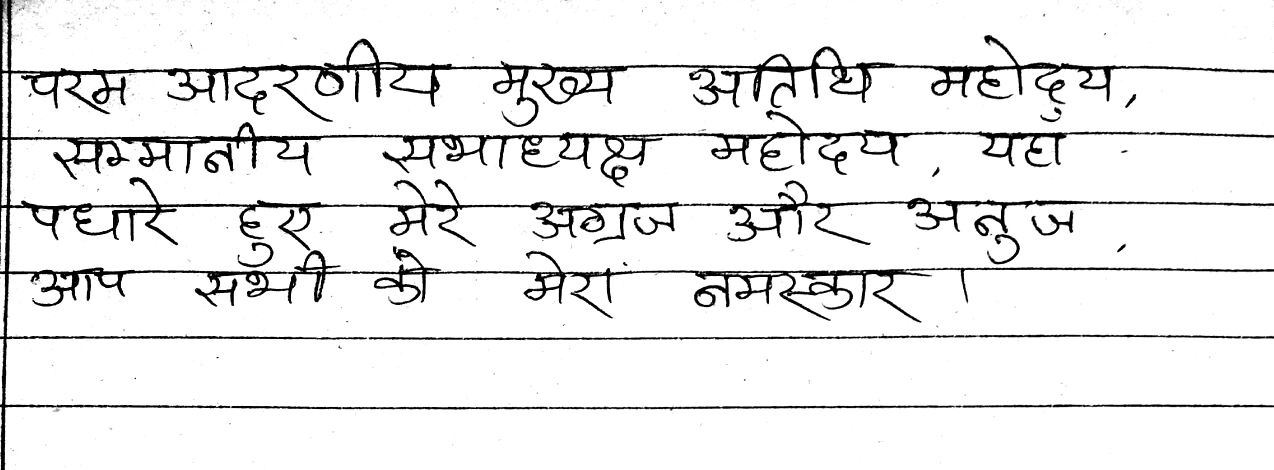 परम आदरणीय मुख्य अतिथि महोदय,
सम्मानीय सभाध्यक्ष महोदय, यहा
पधारे हुए मेरे अग्रज और अनुज,
आप सभी को मेरा नमस्कार ।